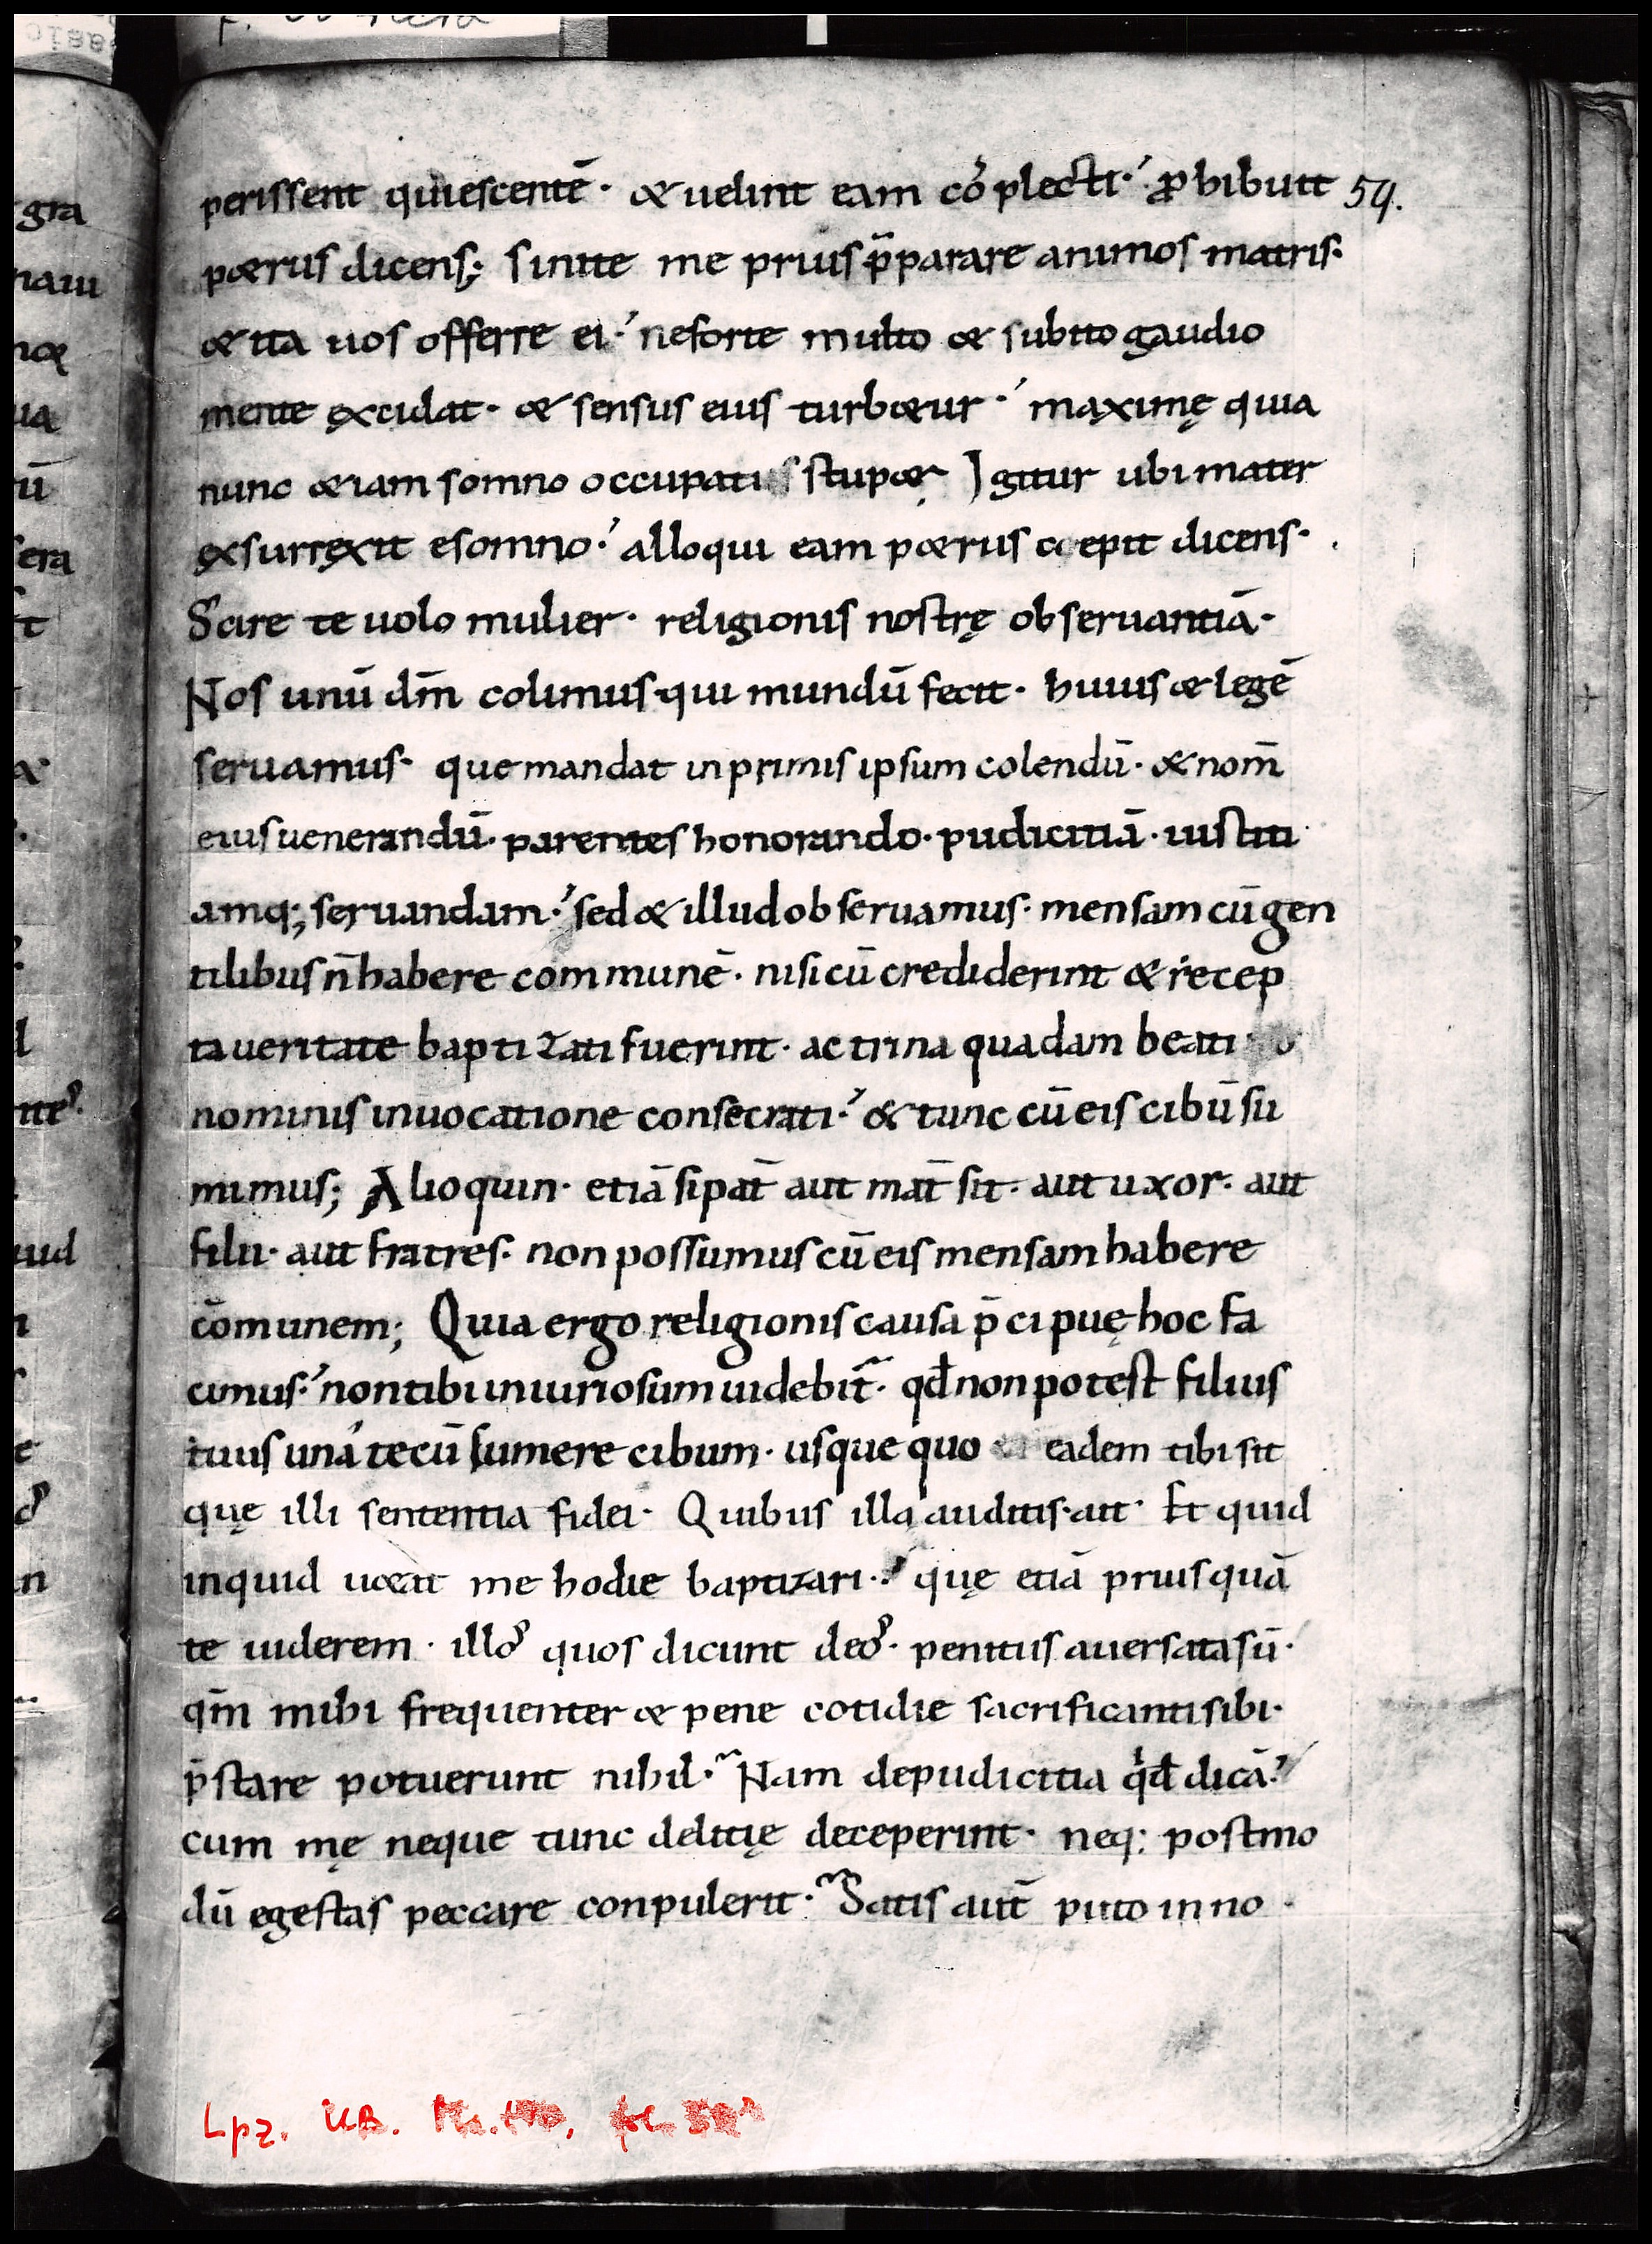 perissent quiescentē· & uelint eam cōplecti·́ ꝓhibuit 59.
p&rus dicens; sinite me prius p̄parare animos matris·
& ita uos offerre ei·́ neforte multo & subito gaudio
mente excidat· & sensus eius turb&ur·́ maximę quia
nunc &iam somno occupatus stup& Igitur ubi mater
exsurrexit esomno·́ alloqui eam p&rus coepit dicens·
Scire te uolo mulier· religionis nostrę obseruantiā·
Nos unū dm̄ colimus·qui mundū fecit· huius & legē
seruamus· que mandat inprimis ipsum colendū· & nom̄
eius uenerandū· parentes honorando· pudicitiā· iusti
amq; seruandam·́ sed & illud obseruamus· mensam cū gen
tilibus n̄ habere communē· nisi cū crediderint & recep
ta ueritate baptizati fuerint· ac trina quadam beati
nominis inuocatione consecrati·́ & tunc cū eis cibū su
mimus; Alioquin· etiā si pat̄ aut mat̄ sit· aut uxor· aut
filii· aut fratres· non possumus cū eis mensam habere
cōmunem; Quia ergo religionis causa p̄cipuę hoc fa
cimus·́ non tibi iniuriosum uidebit̄· qd̄ non potest filius
tuus uná tecū sumere cibum· usque quo eadem tibi sit
quę illi sententia fidei· Quibus illa auditis·ait· Et quid
inquid u&at me hodie baptizari·́ quę etiā priusquā
te uiderem· illoꝝ quos dicunt deoꝝ· penitus auersata sū·
qm̄ mihi frequenter & pene cotidie sacrificanti sibi·
p̄stare potuerunt nihil· Nam depudicitia qd̄ dicā·́
cum mę neque tunc delitię deceperint· neq: postmo
dū egestas peccare conpulerit· Satis aut̄ puto in no·
gra
naui
ua
ū
era
iud
n
Lpz. UB.